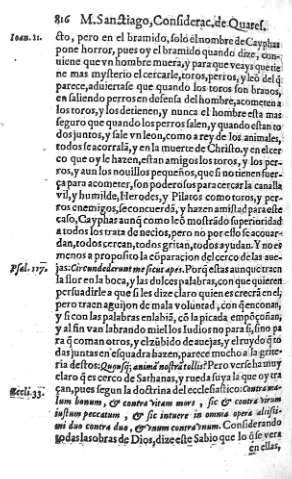 816 M. Sanctiago, Considerac. de Quares.
Ioan. 11.
sto, pero en el bramido, solo el nombre de Cayphas
pone horror, pues oy el bramido quando dize, con-
uiene que vn hombre muera, y para que veays que tie
ne mas mysterio el cercarle, toros, perros, y leõ del q̃
parece, aduiertase que quando los toros son brauos,
en saliendo perros en defensa del hombre, acometen a
los toros, y los detienen, y nunca el hombre esta mas
seguro que quando los perros salen, y quando estan to
dos juntos, y sale vn leon, como a rey de los animales,
todos se acorralã, y en la muerte de Christo. y en el cer
co que oy le hazen, estan amigos los toros, y los per-
ros, y aun los nouillos pequeños, que si no tienen fuer-
ça para acometer, son poderosos para cercar la canalla
vil, y humilde, Herodes, y Pilatos como toros, y per-
ros enemigos, se concuerdã, y hazen amistad para este
caso, Cayphas aunq̃ como leõ mostrãdo superioridad
a todos los trata de necios, pero no por esso se acouar-
dan, todos cercan, todos gritan, todos ayudan. Y no es
menos a proposito la cõparacion del cerco de las aue-
Psal. 117.
jas: Circundederunt me sicut apes. Porq̃ estas aunque traen
la flor en la boca, y las dulces palabras, con que quieren
persuadirle a que si les dize claro quien es creerã en el,
pero traen aguijon de mala voluntad, con q̃ enconan,
y si con las palabras enlabiã, cõ la picada empõçoñan,
y al fin van labrando miel los Iudios no para si, sino pa
ra q̃ coman otros, y el zũbido de auejas, y el ruydo q̃ to
das juntas en esquadra hazen, parece mucho a la grite-
ria destos: Quousq; animã nostrã tollis? Pero verse ha muy
claro q̃ es cerco de Sathanas, y rueda suya la que oy tra
Eccli. 33.
çan, pues segun la doctrina del ecclesiastico: Contra ma-
lum bonum, & contra vitam mors, sic & contra virum
iustum peccatum, & sic intuere in omnia opera altissi-
mi duo contra duo, & vnum contra vnum. Considerando
todas las obras de Dios, dize este Sabio que lo q̃ se vera
en ellas,